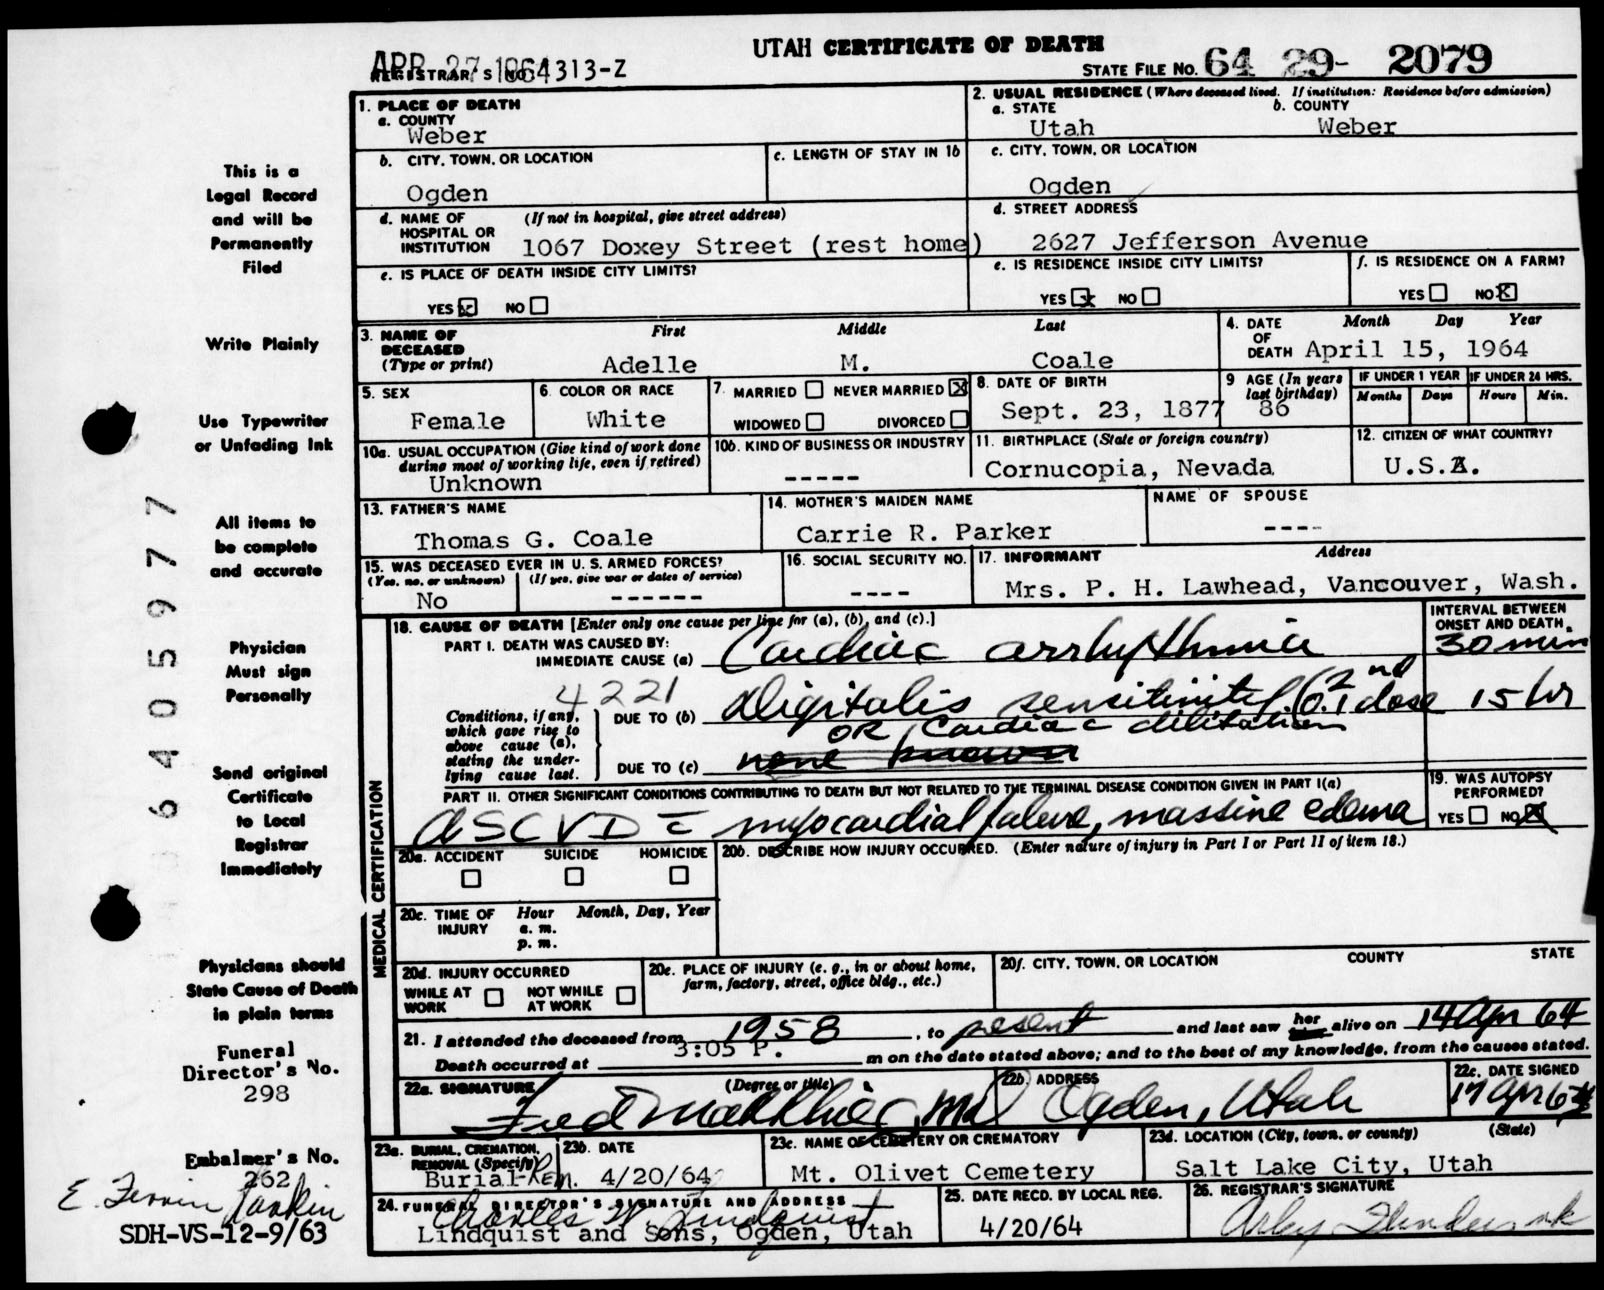 UTAH CERTIFICATE OF DEATH
APR 27 1964
REGISTRAR'S NO. 313-Z
STATE FILE NO. 64 29- 2079
1. PLACE OF DEATH
a. COUNTY
Weber
2. USUAL RESIDENCE (Where deceased lived. If institution: Residence before admission)
a. STATE b. COUNTY
Utah Weber
b. CITY, TOWN, OR LOCATION
Ogden
c. LENGTH OF STAY IN 1b
c. CITY, TOWN, OR LOCATION
Ogden
d. NAME OF HOSPITAL OR INSTITUTION (If not in hospital, give street address)
1067 Doxey Street (rest home)
d. STREET ADDRESS
2627 Jefferson Avenue
e. IS PLACE OF DEATH INSIDE CITY LIMITS?
YES X NO
e. IS RESIDENCE INSIDE CITY LIMITS?
YES X NO
f. IS RESIDENCE ON A FARM?
YES NO X
3. NAME OF DECEASED (Type or print)
First Middle Last
Adelle M. Coale
4. DATE OF DEATH Month Day Year
April 15, 1964
5. SEX
Female
6. COLOR OR RACE
White
7. MARRIED NEVER MARRIED X
WIDOWED DIVORCED
8. DATE OF BIRTH
Sept. 23, 1877
9 AGE (In years last birthday)
86
IF UNDER 1 YEAR IF UNDER 24 HRS.
Months Days Hours Min.
10a. USUAL OCCUPATION (Give kind of work done during most of working life, even if retired)
Unknown
10b. KIND OF BUSINESS OR INDUSTRY
-----
11. BIRTHPLACE (State or foreign country)
Cornucopia, Nevada
12. CITIZEN OF WHAT COUNTRY?
U.S.A.
13. FATHER'S NAME
Thomas G. Coale
14. MOTHER'S MAIDEN NAME
Carrie R. Parker
NAME OF SPOUSE
----
15. WAS DECEASED EVER IN U. S. ARMED FORCES?
(Yes, no, or unknown) (If yes, give war or dates of service)
No ------
16. SOCIAL SECURITY NO.
----
17. INFORMANT Address
Mrs. P. H. Lawhead, Vancouver, Wash.
MEDICAL CERTIFICATION
18. CAUSE OF DEATH [Enter only one cause per line for (a), (b), and (c).]
INTERVAL BETWEEN ONSET AND DEATH
PART I. DEATH WAS CAUSED BY:
IMMEDIATE CAUSE (a) Cardiac arrhythmia 30 min
4221
Conditions, if any, which gave rise to above cause (a), stating the underlying cause last.
DUE TO (b) Digitalis sensitivity (2nd 0.1 dose 15 hr
OR Cardiac dilitation
DUE TO (c) none known
PART II. OTHER SIGNIFICANT CONDITIONS CONTRIBUTING TO DEATH BUT NOT RELATED TO THE TERMINAL DISEASE CONDITION GIVEN IN PART I(a)
ASCVD c myocardial failure, massive edema
19. WAS AUTOPSY PERFORMED?
YES NO X
20a. ACCIDENT SUICIDE HOMICIDE
20b. DESCRIBE HOW INJURY OCCURRED. (Enter nature of injury in Part I or Part II of item 18.)
20c. TIME OF INJURY Hour Month, Day, Year
a. m.
p. m.
20d. INJURY OCCURRED
WHILE AT WORK NOT WHILE AT WORK
20e. PLACE OF INJURY (e. g., in or about home, farm, factory, street, office bldg., etc.)
20f. CITY, TOWN, OR LOCATION COUNTY STATE
21. I attended the deceased from 1958, to present and last saw her alive on 14 Apr 64
Death occurred at 3:05 P. m on the date stated above; and to the best of my knowledge, from the causes stated.
22a. SIGNATURE (Degree or title)
22b. ADDRESS
Ogden, Utah
22c. DATE SIGNED
17 Apr 64
23a. BURIAL, CREMATION, REMOVAL (Specify)
Burial-Rem.
23b DATE
4/20/64
23c. NAME OF CEMETERY OR CREMATORY
Mt. Olivet Cemetery
23d. LOCATION (City, town, or county) (State)
Salt Lake City, Utah
24. FUNERAL DIRECTOR'S SIGNATURE AND ADDRESS
Charles W. Lindquist
Lindquist and Sons, Ogden, Utah
25. DATE RECD. BY LOCAL REG.
4/20/64
26. REGISTRAR'S SIGNATURE
This is a
Legal Record
and will be
Permanently
Filed
Write Plainly
Use Typewriter
or Unfading Ink
All items to
be complete
and accurate
Physician
Must sign
Personally
Send original
Certificate
to Local
Registrar
immediately
Physicians should
State Cause of Death
in plain terms
Funeral
Director's No.
298
Embalmer's No.
262
SDH-VS-12-9/63
6405977